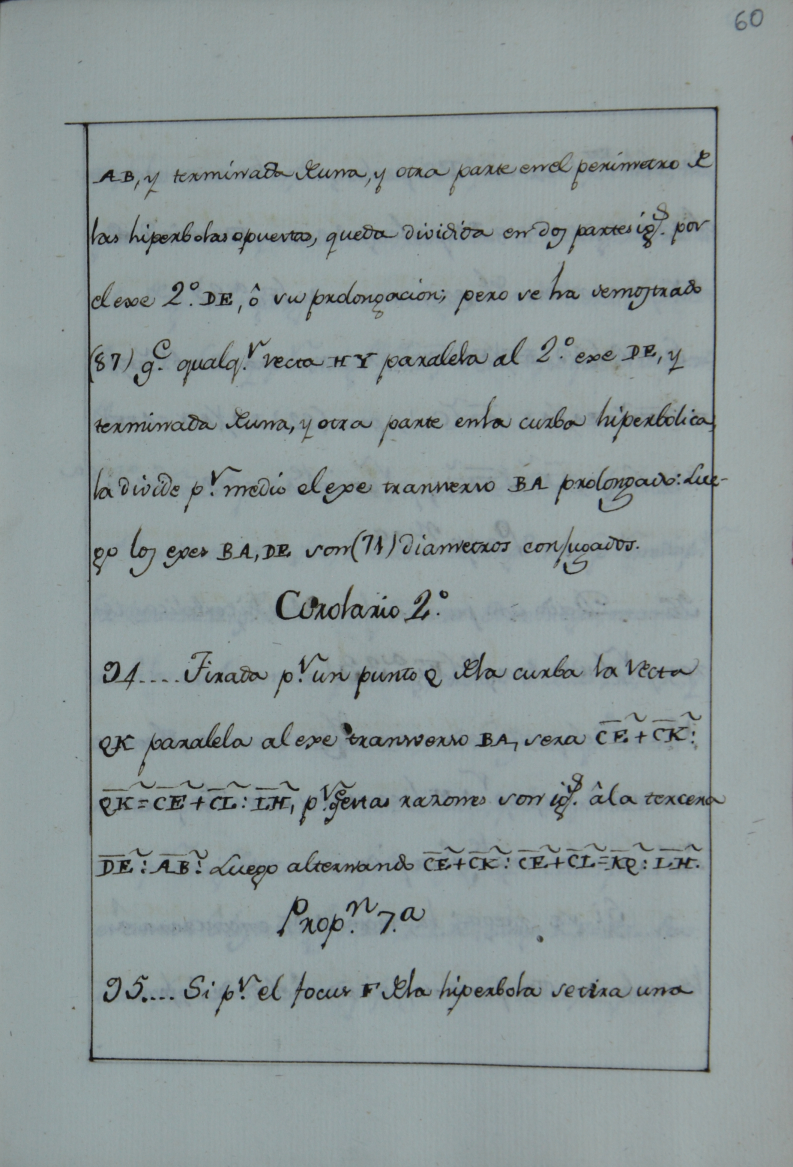 60
AB, y terminada de una, y otra parte en el perimetro de
las hiperbolas opuestas, queda dividida en dos partes ig.s por
el exe 2.º DE, ô su prolongacion; pero se ha demostrado
(87) q.e qualq.r recta HY paralela al 2.º exe DE, y
terminada de una, y otra parte en la curba hiperbolica,
la divide p.r medio el exe transverso BA prolongado: Lue-
go los exes BA, DE son (71) diametros conjugados.
Corolario 2.º
94.... Tirada p.r un punto Q de la curba la recta
QK paralela al exe transverso BA, sera C̃E + C̃K :
Q̃K = C̃E + C̃L : L̃H, p.r q.e estas razones son ig.s â la tercera
D̃E : ÃB : Luego alternando C̃E + C̃K : C̃E + C̃L = K̃Q : L̃H.
Prop.n 7.a
95.... Si p.r el focus F de la hiperbola se tira una